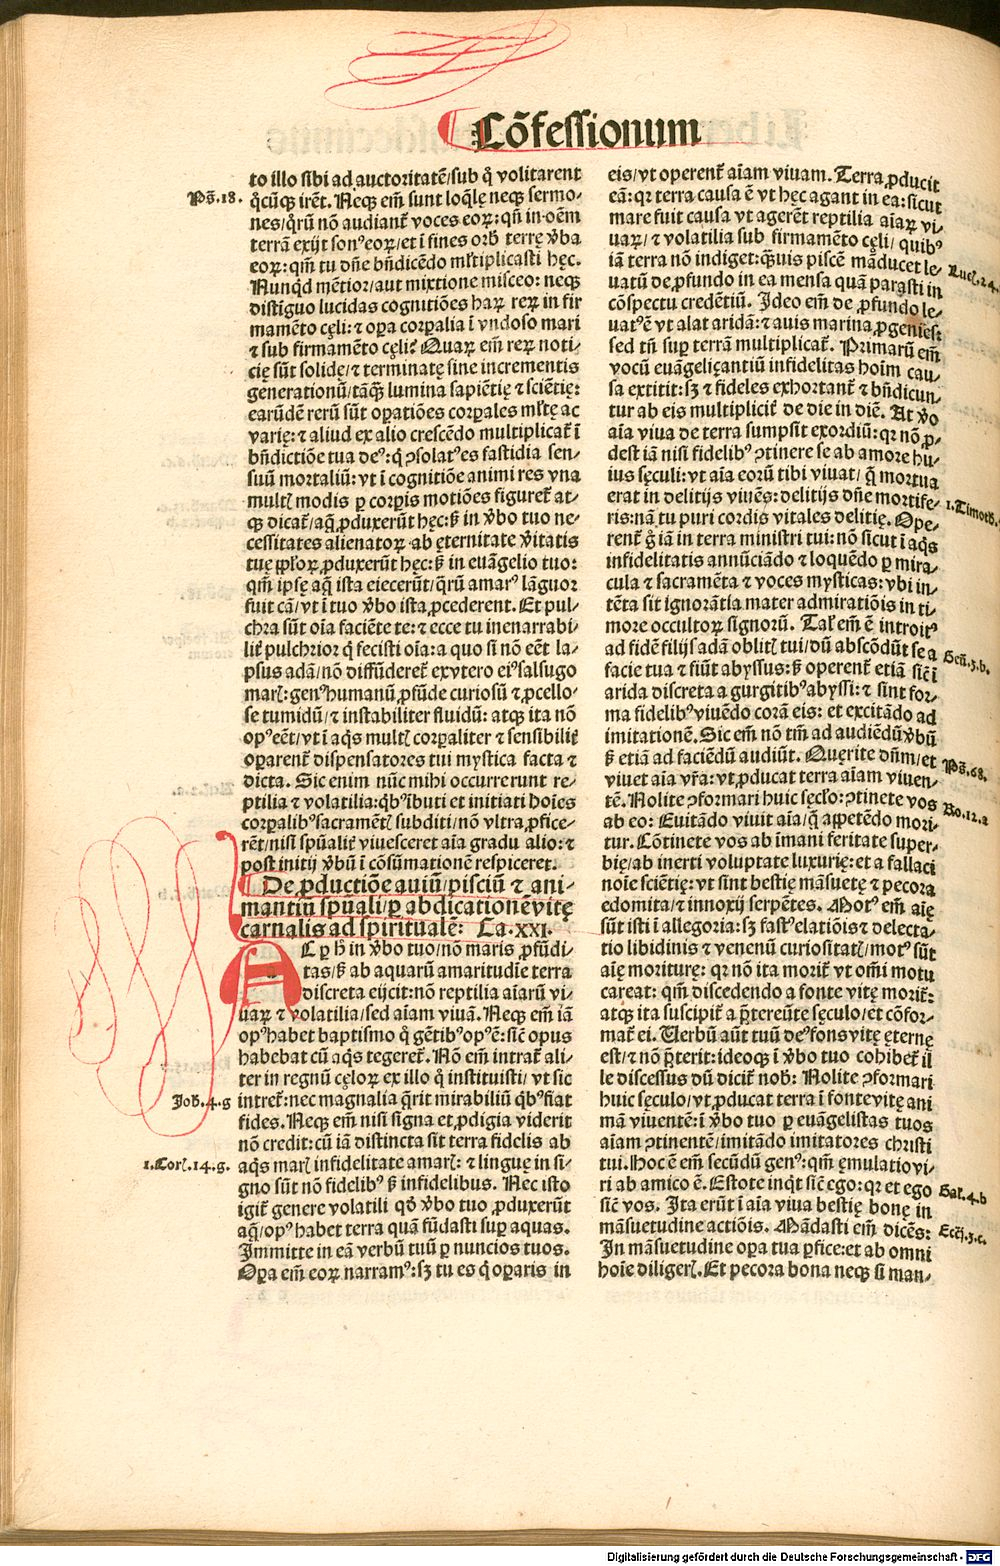 Cõfessionum
to illo sibi ad auctoritatẽ/sub q̃ volitarent
Ps̃.18.
q̃cũqꝫ irẽt. Neqꝫ em̃ sunt loq̃lę neqꝫ sermo-
nes/qꝛũ nõ audiant᷑ voces eoꝝ: qñ in oẽm
terrã exijt sonꝰ eoꝝ/et ĩ fines orb̃ terrę ṽba
eoꝝ: qm̃ tu dñe bñdicẽdo ml̃tiplicasti hęc.
Nunqͥd mẽtior/aut mixtione misceo: neqꝫ
distĩguo lucidas cognitiões haꝝ reꝝ in fir
mamẽto cęli: ⁊ oꝑa corꝑalia ĩ vndoso mari
⁊ sub firmamẽto cęli? Quaꝝ em̃ reꝝ noti-
cię sũt solide/⁊ terminatę sine incrementis
generationũ/tãqꝫ lumina sapiẽtię ⁊ sciẽtię:
earũdẽ rerũ sũt oꝑatiões corꝑales ml̃tę ac
varię: ⁊ aliud ex alio crescẽdo multiplicat᷑ ĩ
bñdictiõe tua deꝰ: q̃ ꝯsolatꝰes fastidia sen-
suũ mortaliũ: vt ĩ cognitiõe animi res vna
multꝭ modis ꝑ corꝑis motiões figuret᷑ at-
qꝫ dicat᷑/aq̃ ꝓduxerũt hęc: sꝫ in ṽbo tuo ne-
cessitates alienatoꝝ ab ęternitate ṽitatis
tuę ip̃loꝝ ꝓduxerũt hęc: sꝫ in euãgelio tuo:
qm̃ ipse aq̃ ista eiecerũt/qꝛũ amarꝰ lãguor
fuit cã/vt ĩ tuo ṽbo ista ꝓcederent. Et pul-
chra sũt oĩa faciẽte te: ⁊ ecce tu inenarrabi-
lit᷑ pulchrior q̃ fecisti oĩa: a quo si nõ eẽt la-
psus adã/nõ diffũderet᷑ ex vtero eiꝰ salsugo
marꝭ: genꝰ humanũ ꝓfũde curiosũ ⁊ ꝓcello-
se tumidũ/⁊ instabiliter fluidũ: atqꝫ ita nõ
opꝰ eẽt/vt ĩ aq̃s multꝭ corꝑaliter ⁊ sensibilit᷑
oꝑarent᷑ dispensatores tui mystica facta ⁊
dicta. Sic enim nũc mihi occurrerunt re-
ptilia ⁊ volatilia: qͥbꝰ ĩbuti et initiati hoĩes
corꝑalibꝰ sacramẽtꝭ subditi/nõ vltra ꝓfice-
rẽt/nisi sp̃ualit᷑ viuesceret aĩa gradu alio: ⁊
post initij ṽbũ ĩ cõsũmationẽ respiceret.
De ꝓductiõe auiũ/pisciũ ⁊ ani-
mantiũ sp̃uali/ꝑ abdicationẽ vitę
carnalis ad spiritualẽ: Ca.XXI.
AC ꝑ h̃ in ṽbo tuo/nõ maris ꝓfũdi-
tas/sꝫ ab aquarũ amaritudĩe terra
discreta eijcit: nõ reptilia aĩarũ vi-
uaꝝ ⁊ volatilia/sed aĩam viuã. Neqꝫ em̃ iã
opꝰ habet baptismo q̃ gẽtibꝰ opꝰ ẽ: sic̃ opus
habebat cũ aq̃s tegeret᷑. Nõ em̃ intrat᷑ ali-
ter in regnũ cęloꝝ ex illo q̃ instituisti/vt sic
Joh̃.4.g
intret᷑: nec magnalia q̃rit mirabiliũ qͥbꝰ fiat
fides. Neqꝫ em̃ nisi signa et ꝓdigia viderit
nõ credit: cũ iã distincta sit terra fidelis ab
1.Corꝭ.14.g.
aq̃s marꝭ infidelitate amarꝭ: ⁊ linguę in si-
gno sũt nõ fidelibꝰ sꝫ infidelibus. Nec isto
igit᷑ genere volatili qd̃ ṽbo tuo ꝓduxerũt
aq̃/opꝰ habet terra quã fũdasti suꝑ aquas.
Jmmitte in eã verbũ tuũ ꝑ nuncios tuos.
Oꝑa em̃ eoꝝ narramꝰ: sꝫ tu es q̃ oꝑaris in
eis/vt operent᷑ aĩam viuam. Terra ꝓducit
eã: qꝛ terra causa ẽ vt hęc agant in ea: sicut
mare fuit causa vt agerẽt reptilia aĩaꝝ vi-
uaꝝ/⁊ volatilia sub firmamẽto cęli/quibꝰ
iã terra nõ indiget: q̃uis piscẽ mãducet le-
Luc̃.24.
uatũ de ꝓfundo in ea mensa quã parasti in
cõspectu credẽtiũ. Jdeo em̃ de ꝓfundo le-
uatꝰ ẽ vt alat aridã: ⁊ auis marina ꝓgenies:
sed tñ suꝑ terrã multiplicat᷑. Primarũ em̃
vocũ euãgelicãtiũ infidelitas hoĩm cau-
sa extitit: sꝫ ⁊ fideles exhortant᷑ ⁊ bñdicun-
tur ab eis multiplicit᷑ de die in diẽ. At ṽo
aĩa viua de terra sumpsit exordiũ: qꝛ nõ ꝓ-
dest iã nisi fidelibꝰ ꝯtinere se ab amore hu-
ius sęculi: vt aĩa eorũ tibi viuat/q̃ mortua
erat in delitijs viuẽs: delitijs dñe mortife-
1.Timoth.
ris: nã tu puri cordis vitales delitię. Ope-
rent᷑ g̃ iã in terra ministri tui: nõ sicut ĩ aq̃s
infidelitatis annũciãdo ⁊ loquẽdo ꝑ mira-
cula ⁊ sacramẽta ⁊ voces mysticas: vbi in-
tẽta sit ignorãtia mater admiratiõis in ti-
more occultoꝝ signorũ. Tal᷑ em̃ ẽ introitꝰ
ad fidẽ filijs adã oblitꝭ tui/dũ abscõdũt se a
Geñ.3.b.
facie tua ⁊ fiũt abyssus: sꝫ operent᷑ etiã sic̃ ĩ
arida discreta a gurgitibꝰ abyssi: ⁊ sint for-
ma fidelibꝰ viuẽdo corã eis: et excitãdo ad
imitationẽ. Sic em̃ nõ tm̃ ad audiẽdũ ṽbũ
sꝫ etiã ad faciẽdũ audiũt. Quęrite dñm/et
Ps̃.68.
viuet aĩa vr̃a: vt ꝓducat terra aĩam viuen-
tẽ. Nolite ꝯformari huic sęclo: ꝯtinete vos
Ro.12.a
ab eo: Euitãdo viuit aĩa/q̃ appetẽdo mori-
tur. Cõtinete vos ab ĩmani feritate super-
bię/ab inerti voluptate luxurię: et a fallaci
noĩe sciẽtię: vt sint bestię mãsuetę ⁊ pecora
edomita/⁊ innoxij serpẽtes. Motꝰ em̃ aĩę
sũt isti ĩ allegoria: sꝫ fastꝰ elatiõis ⁊ delecta-
tio libidinis ⁊ venenũ curiositatꝭ/motꝰ sũt
aĩę moriturę: qꝛ nõ ita morit᷑ vt om̃i motu
careat: qm̃ discedendo a fonte vitę morit᷑:
atqꝫ ita suscipit᷑ a p̃tereũte sęculo/et cõfor-
mat᷑ ei. Verbũ aũt tuũ deꝰ fons vitę ęternę
est/⁊ nõ p̃terit: ideoqꝫ ĩ ṽbo tuo cohibet᷑ il
le discessus dũ dicit᷑ nob̃: Nolite ꝯformari
huic sęculo/vt ꝓducat terra ĩ fonte vitę ani
mã viuentẽ: ĩ ṽbo tuo ꝑ euãgelistas tuos
aĩam ꝯtinentẽ/imitãdo imitatores christi
tui. Hoc ẽ em̃ secũdũ genꝰ: qm̃ ęmulatio vi-
ri ab amico ẽ. Estote inqͥt sic̃ ego: qꝛ et ego
Gal.4.b
sic̃ vos. Jta erũt ĩ aĩa viua bestię bonę in
mãsuetudine actiõis. Mãdasti em̃ dicẽs:
Ecc̃j.3.c.
In mãsuetudine oꝑa tua ꝑfice: et ab omni
hoĩe diligerꝭ. Et pecora bona neqꝫ si man-
Digitalisierung gefördert durch die Deutsche Forschungsgemeinschaft - DFG